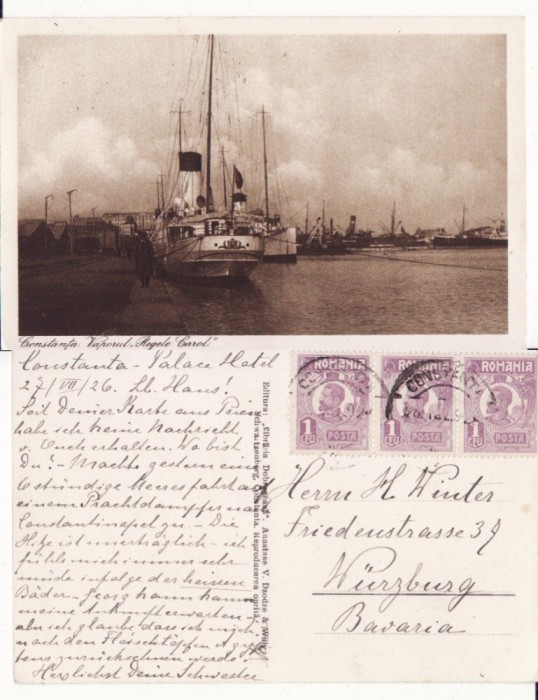 Constanța. Vaporul „Regele Carol"
Constanta - Palace Hotel
27/VII/26. Lb. Hans!
Seit Deiner Karte aus Wien
habe ich keine Nachricht
v. Euch erhalten. Wo bist
Du? - Machte gestern eine
6stündige Meeresfahrt auf
einem Prachtdampfer nach
Constantinopel zu. - Die
Hitze ist unerträglich - ich
fühle mich immer sehr
müde infolge der heissen
Bäder - Georg kann kann
meine Ankunft erwarten -
aber ich glaube dass ich mich
nach den Fleischtöpfen Aegyp
tens zurücksehnen werde.
Herzlichst Deine Schwester
Editura „Libraria Anastase V. Dzodza &
Constanta. Reproducerea oprită.
ROMANIA
1 LEU
POSTA
1
ROMANIA
1 LEU
POSTA
1
ROMANIA
1 LEU
POSTA
1
CONSTANTA
Herrn H Winter
Friedenstrasse 37
Würzburg
Bavaria